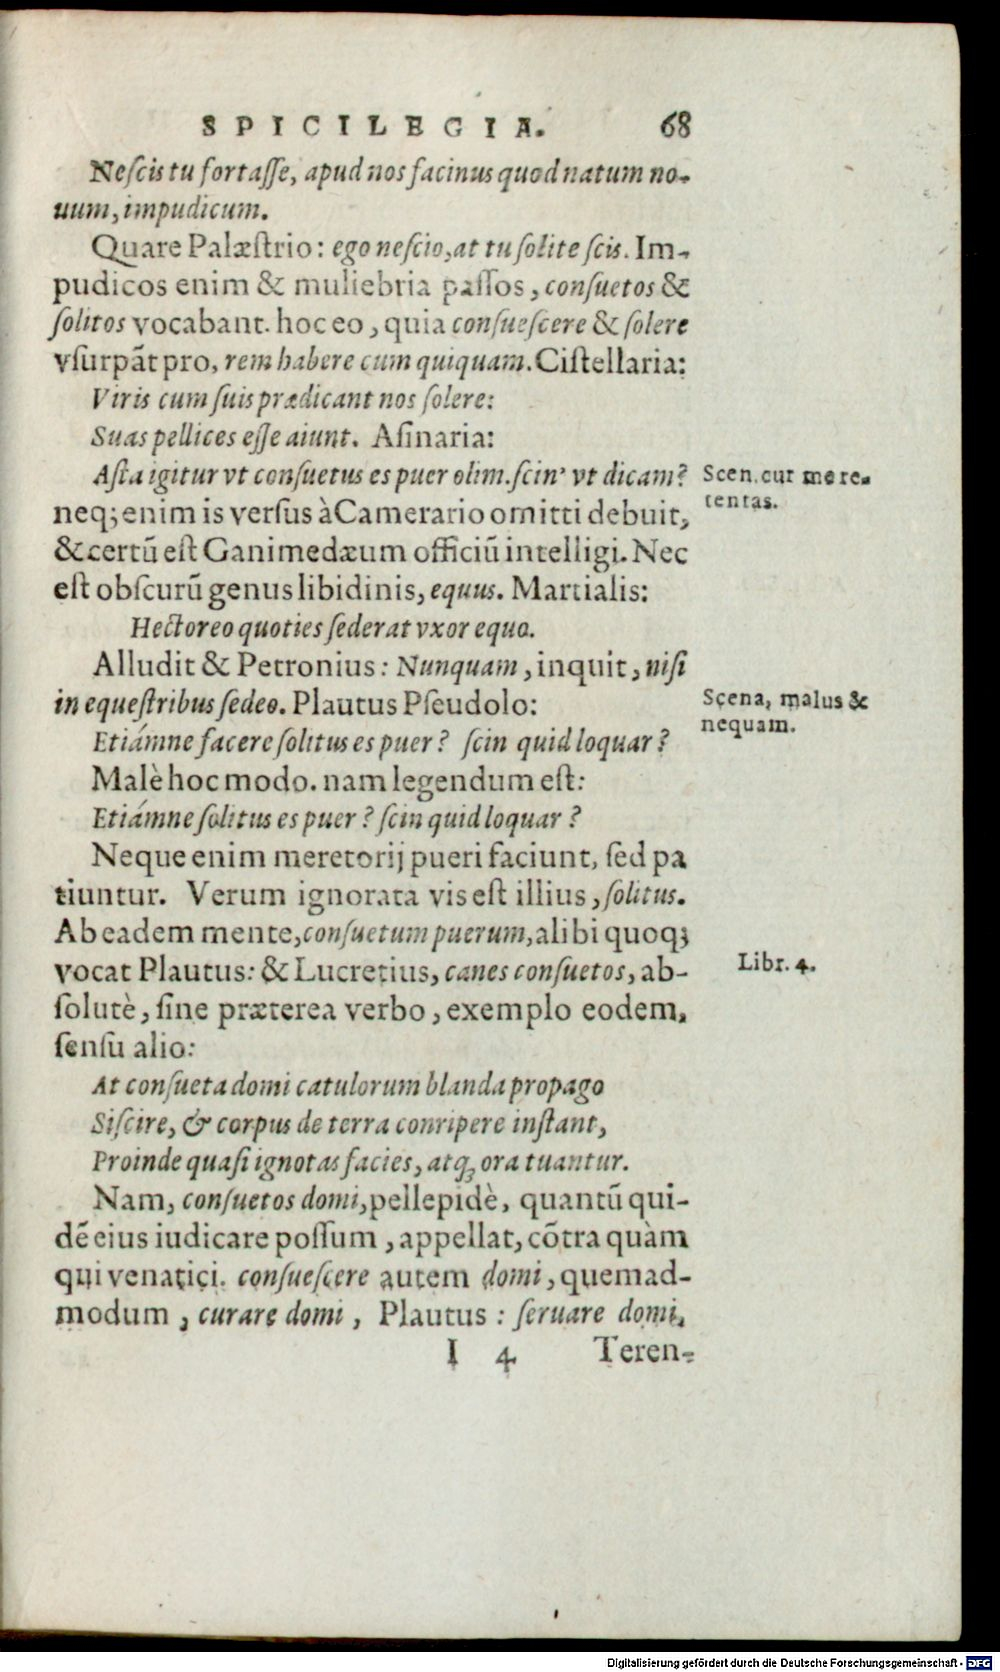 SPICILEGIA. 68
Neſcis tu fortaſſe, apud nos facinus quod natum no-
uum, impudicum.
Quare Palæſtrio: ego neſcio, at tu ſolite ſcis. Im-
pudicos enim & muliebria paſſos, conſuetos &
ſolitos vocabant. hoc eo, quia conſueſcere & ſolere
vſurpāt pro, rem habere cum quiquam. Ciſtellaria:
Viris cum ſuis prædicant nos ſolere:
Suas pellices eſſe aiunt. Aſinaria:
Aſta igitur vt conſuetus es puer olim. ſcin' vt dicam?
Scen. cur me re-
tentas.
neq; enim is verſus à Camerario omitti debuit,
& certū eſt Ganimedæum officiū intelligi. Nec
eſt obſcurū genus libidinis, equus. Martialis:
Hectoreo quoties ſederat vxor equo.
Alludit & Petronius: Nunquam, inquit, niſi
in equeſtribus ſedeo. Plautus Pſeudolo:
Scena, malus &
nequam.
Etiámne facere ſolitus es puer? ſcin quid loquar?
Malè hoc modo. nam legendum eſt:
Etiámne ſolitus es puer? ſcin quid loquar?
Neque enim meretorij pueri faciunt, ſed pa
tiuntur. Verum ignorata vis eſt illius, ſolitus.
Ab eadem mente, conſuetum puerum, alibi quoq;
vocat Plautus: & Lucretius, canes conſuetos, ab-
Libr. 4.
ſolutè, ſine præterea verbo, exemplo eodem,
ſenſu alio:
At conſueta domi catulorum blanda propago
Siſcire, & corpus de terra conripere inſtant,
Proinde quaſi ignotas facies, atq; ora tuantur.
Nam, conſuetos domi, pellepidè, quantū qui-
dē eius iudicare poſſum, appellat, cōtra quàm
qui venatici. conſueſcere autem domi, quemad-
modum, curare domi, Plautus: ſeruare domi,
I 4 Teren-
Digitalisierung gefördert durch die Deutsche Forschungsgemeinschaft - DFG